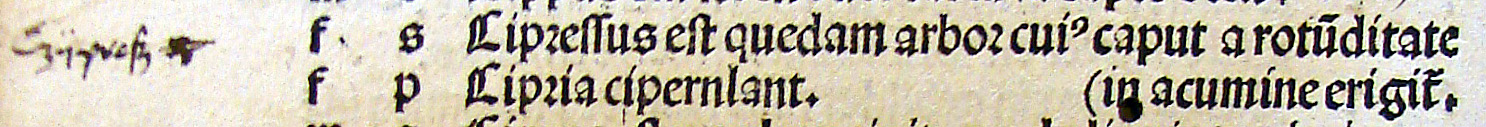 f. s Cipressus est quedam arbor cuiꝰ caput a rotūditate
f p Cipria cipernlant. (in acumine erigit̃.